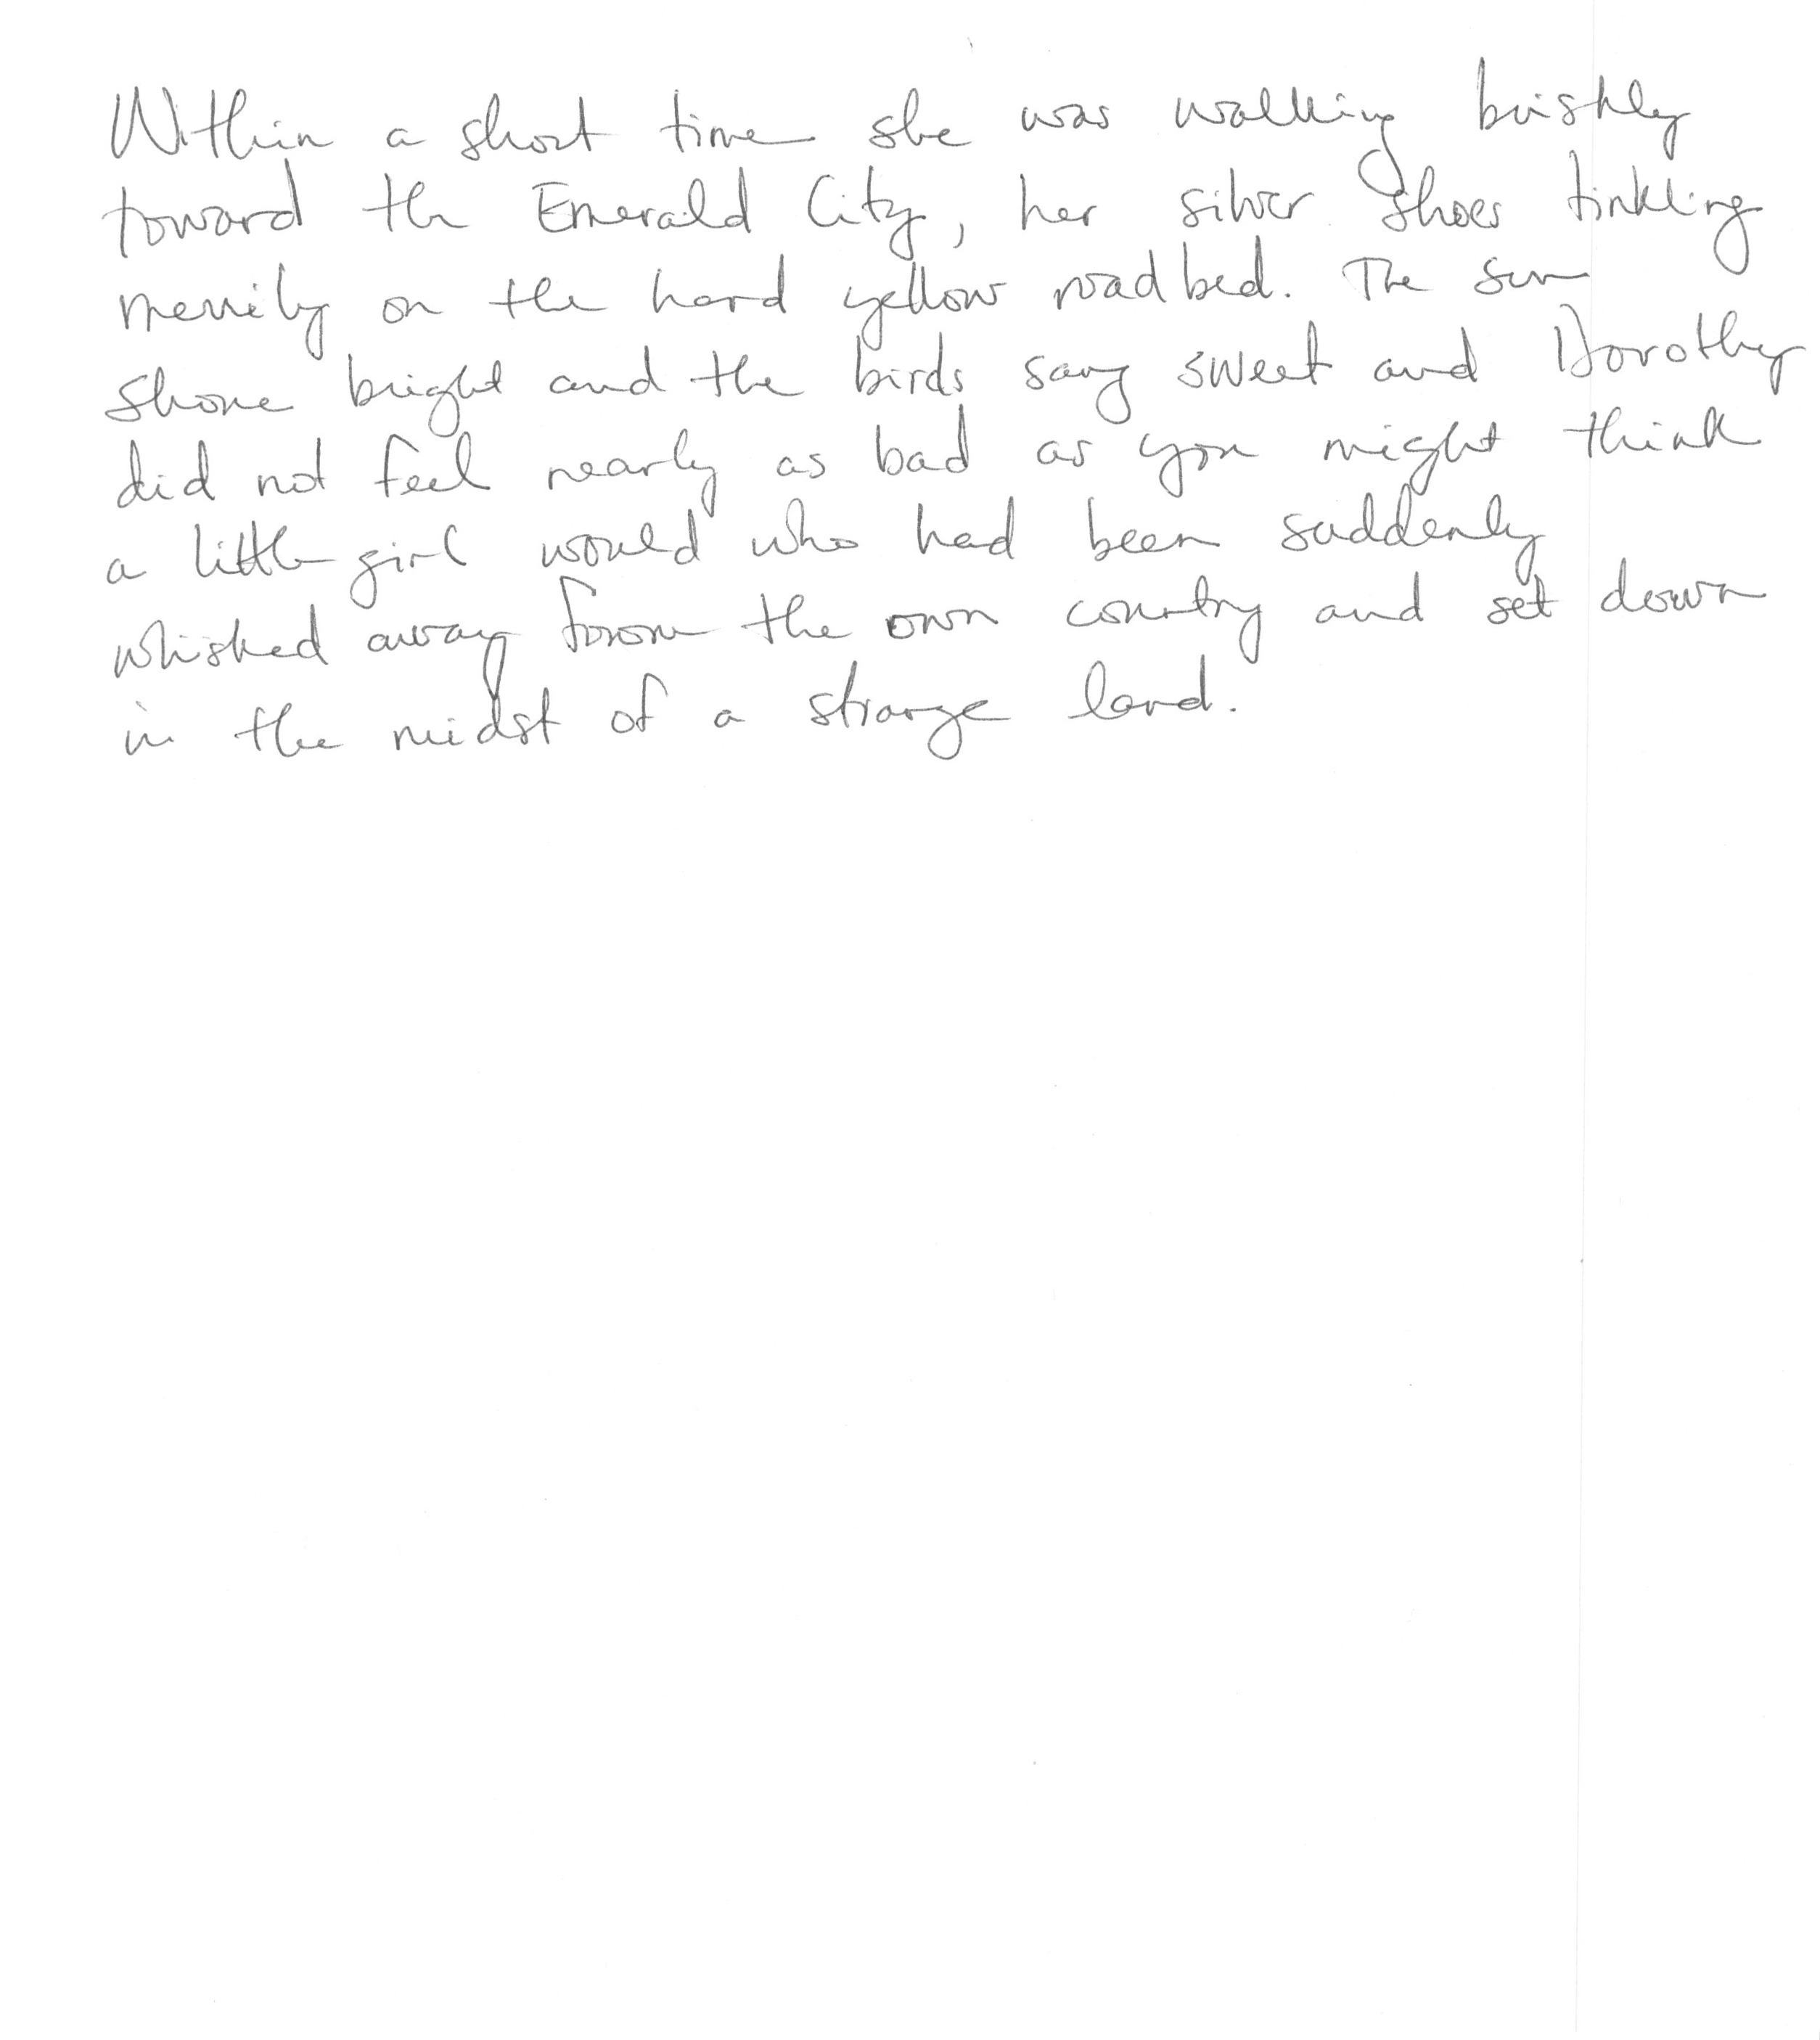 Within a short time she was walking briskly
toward the Emerald City, her silver shoes tinkling
merrily on the hard yellow roadbed. The sun
shone bright and the birds sang sweet and Dorothy
did not feel nearly as bad as you might think
a little girl would who had been suddenly
whisked away from the own country and set down
in the midst of a strange land.